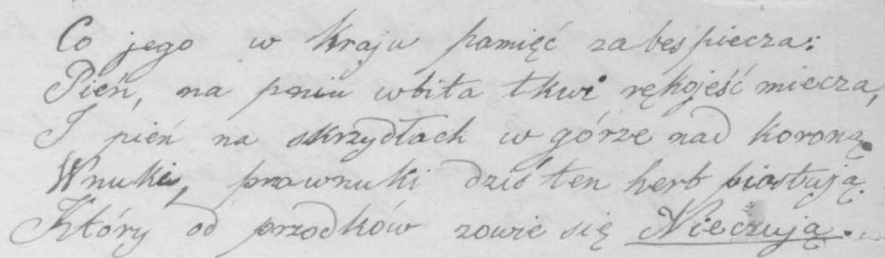 Co jego w kraju pamięć zabespiecza:
Pień, na pniu wbita tkwi rękojeść miecza,
I pień na skrzydłach w górze nad koroną
Wnuki, prawnuki dziś ten herb piastują.
Który od przodków zowie się Nieczują.